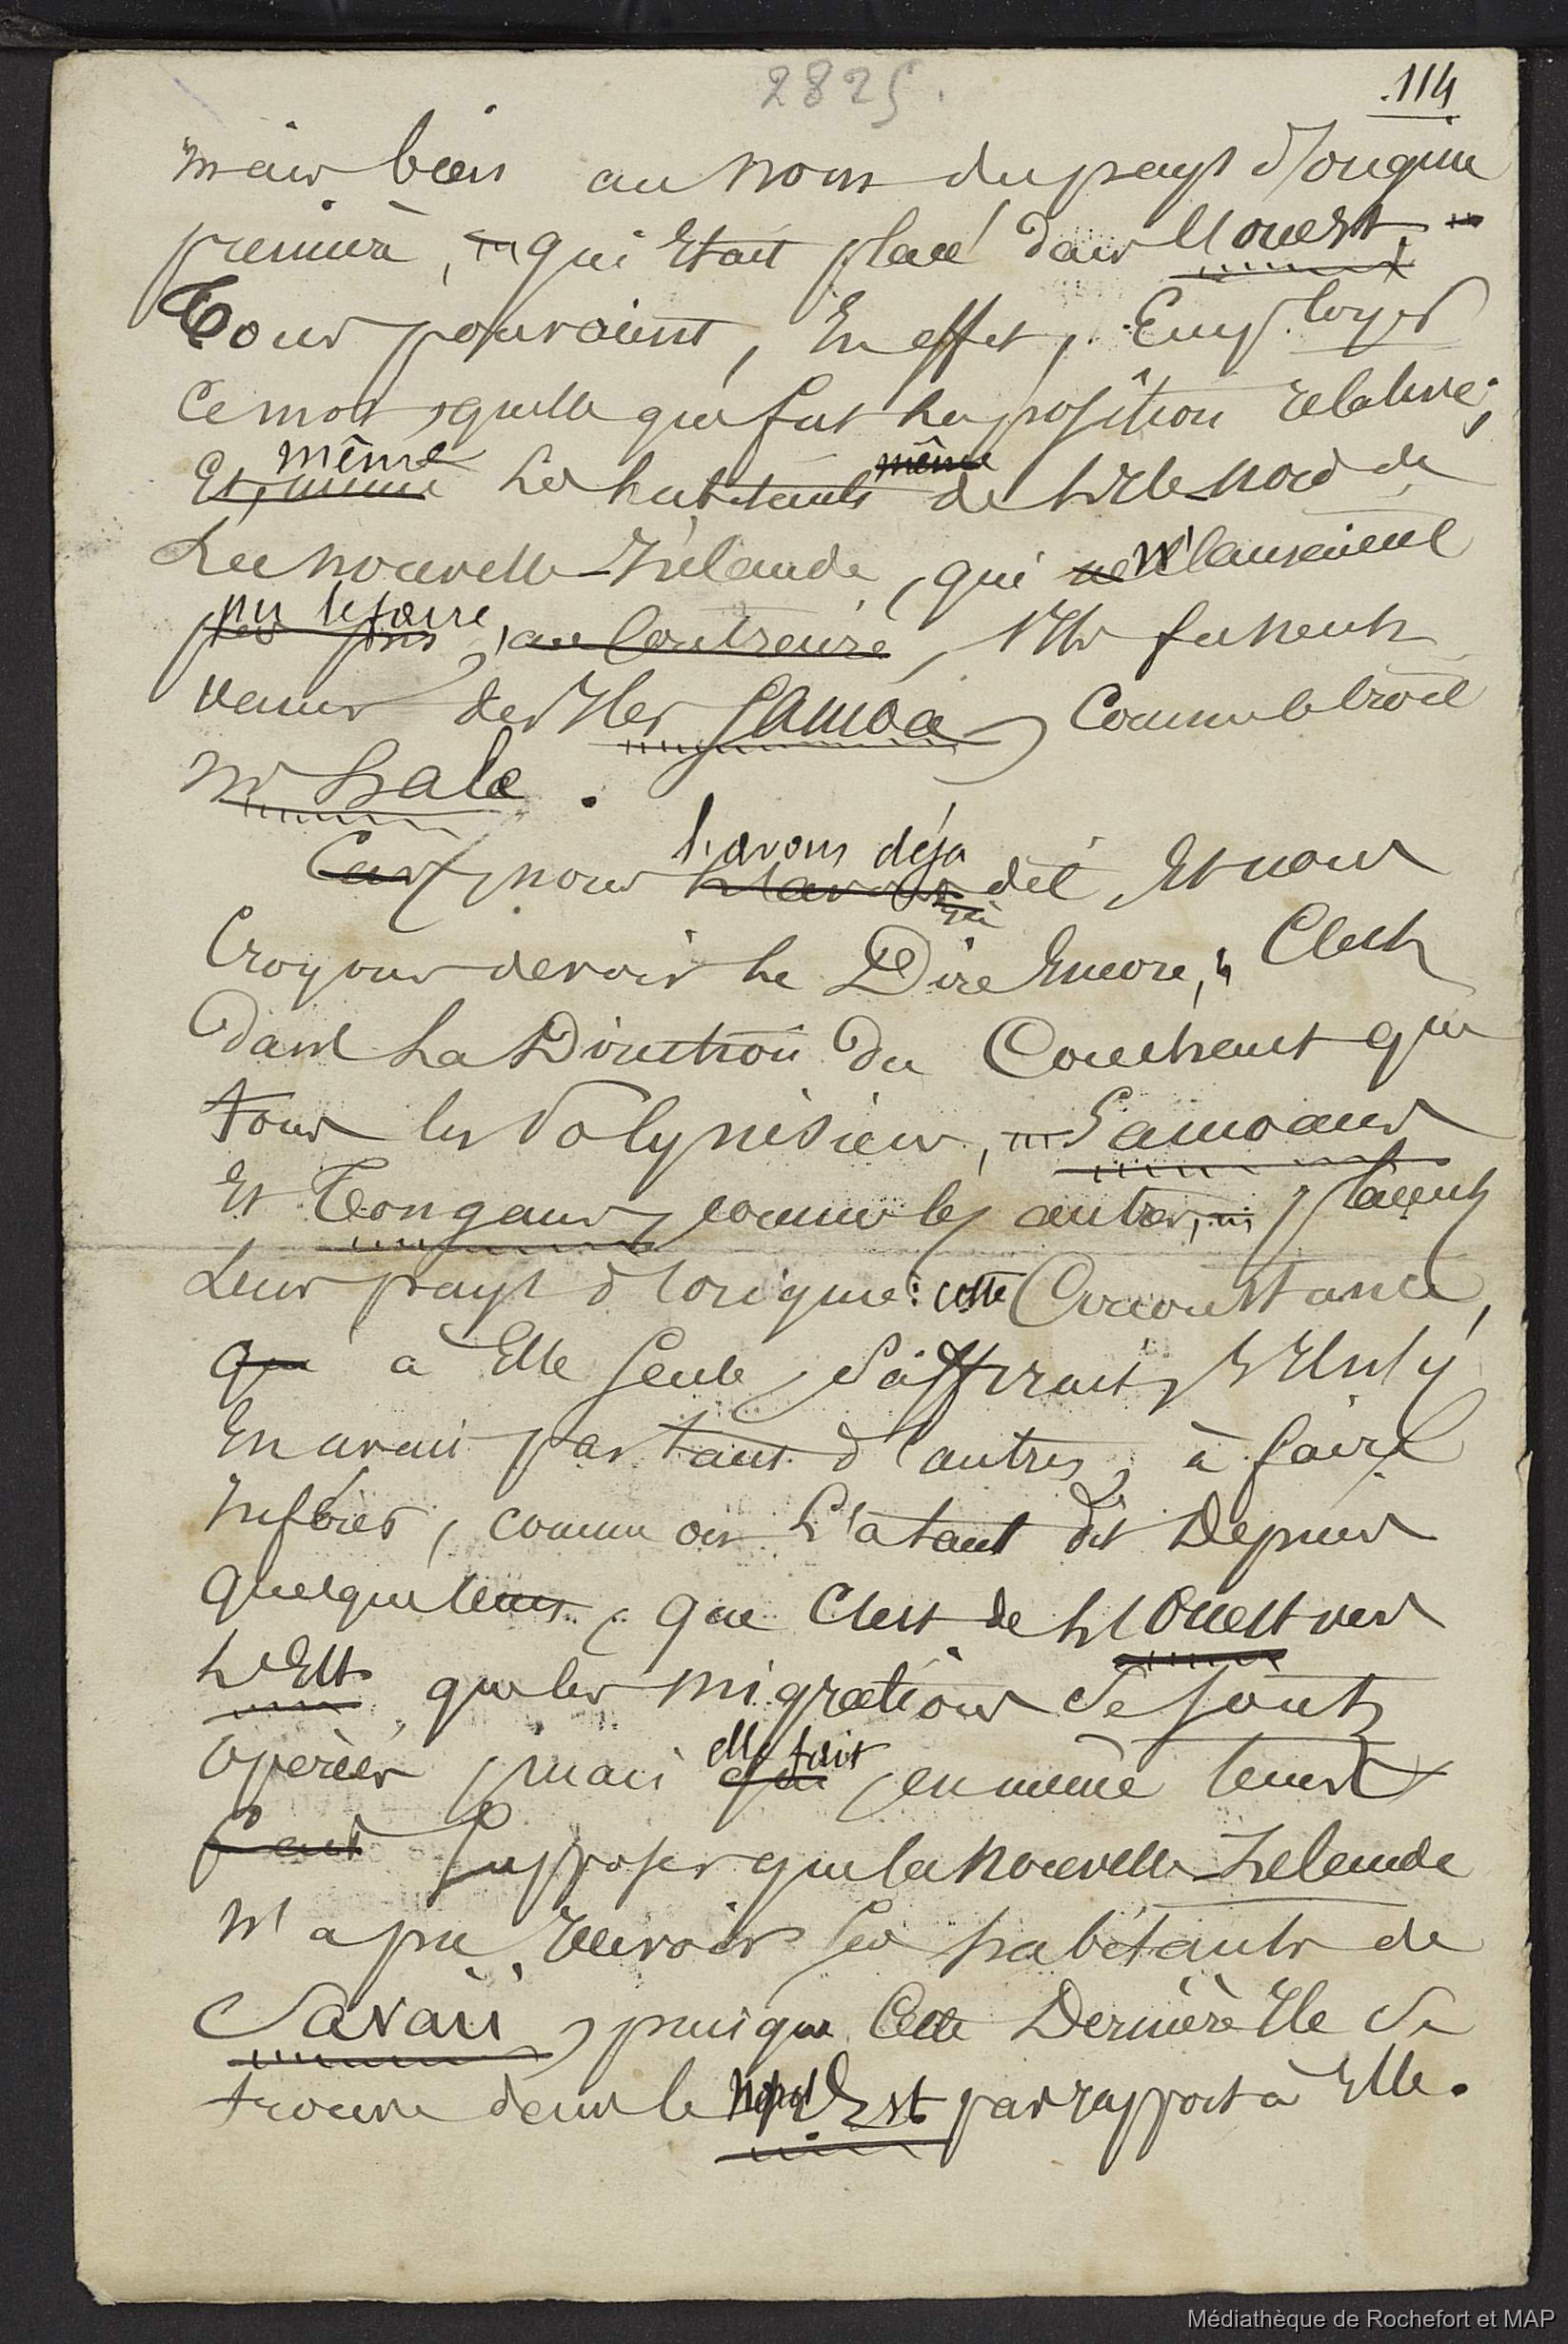 2825.
114
mais bien au nom du pays d'origine
première, — qui était placé dans l'ouest, —
Tous pouvaient, en effet, employer
ce mot, quelle que fut la position relative;
même
Et, même les habitants même de l'île nord de
La nouvelle-Zélande, qui ne n'l'auraient
pu le faire
pas pris, au contraire, s'ils fussent
venus des îles Samoa, comme le croit
Mr hale.
l'avons déja
Car, nous l'avons déjà dit, et nous
croyons devoir le dire encore, c'est
dans la direction du couchant que
tous les Polynésiens, — Samoans
et Tongans, comme les autres, — placent
leur pays d'origine: cette circonstance,
qui à elle seule, suffirait, s'il n'y
en avait pas tant d'autres, à faire
inférer, comme on l'a tant dit depuis
quelque tems, que c'est de l'Ouest vers
l'Est que les migrations se sont
opérées, mais elle fait qui, en même tems
fait supposer que la nouvelle-Zélande
n'a pu recevoir les habitants de
Savaii, puisque cette dernière île se
trouve dans le Nord Est par rapport à elle.
Médiathèque de Rochefort et MAP